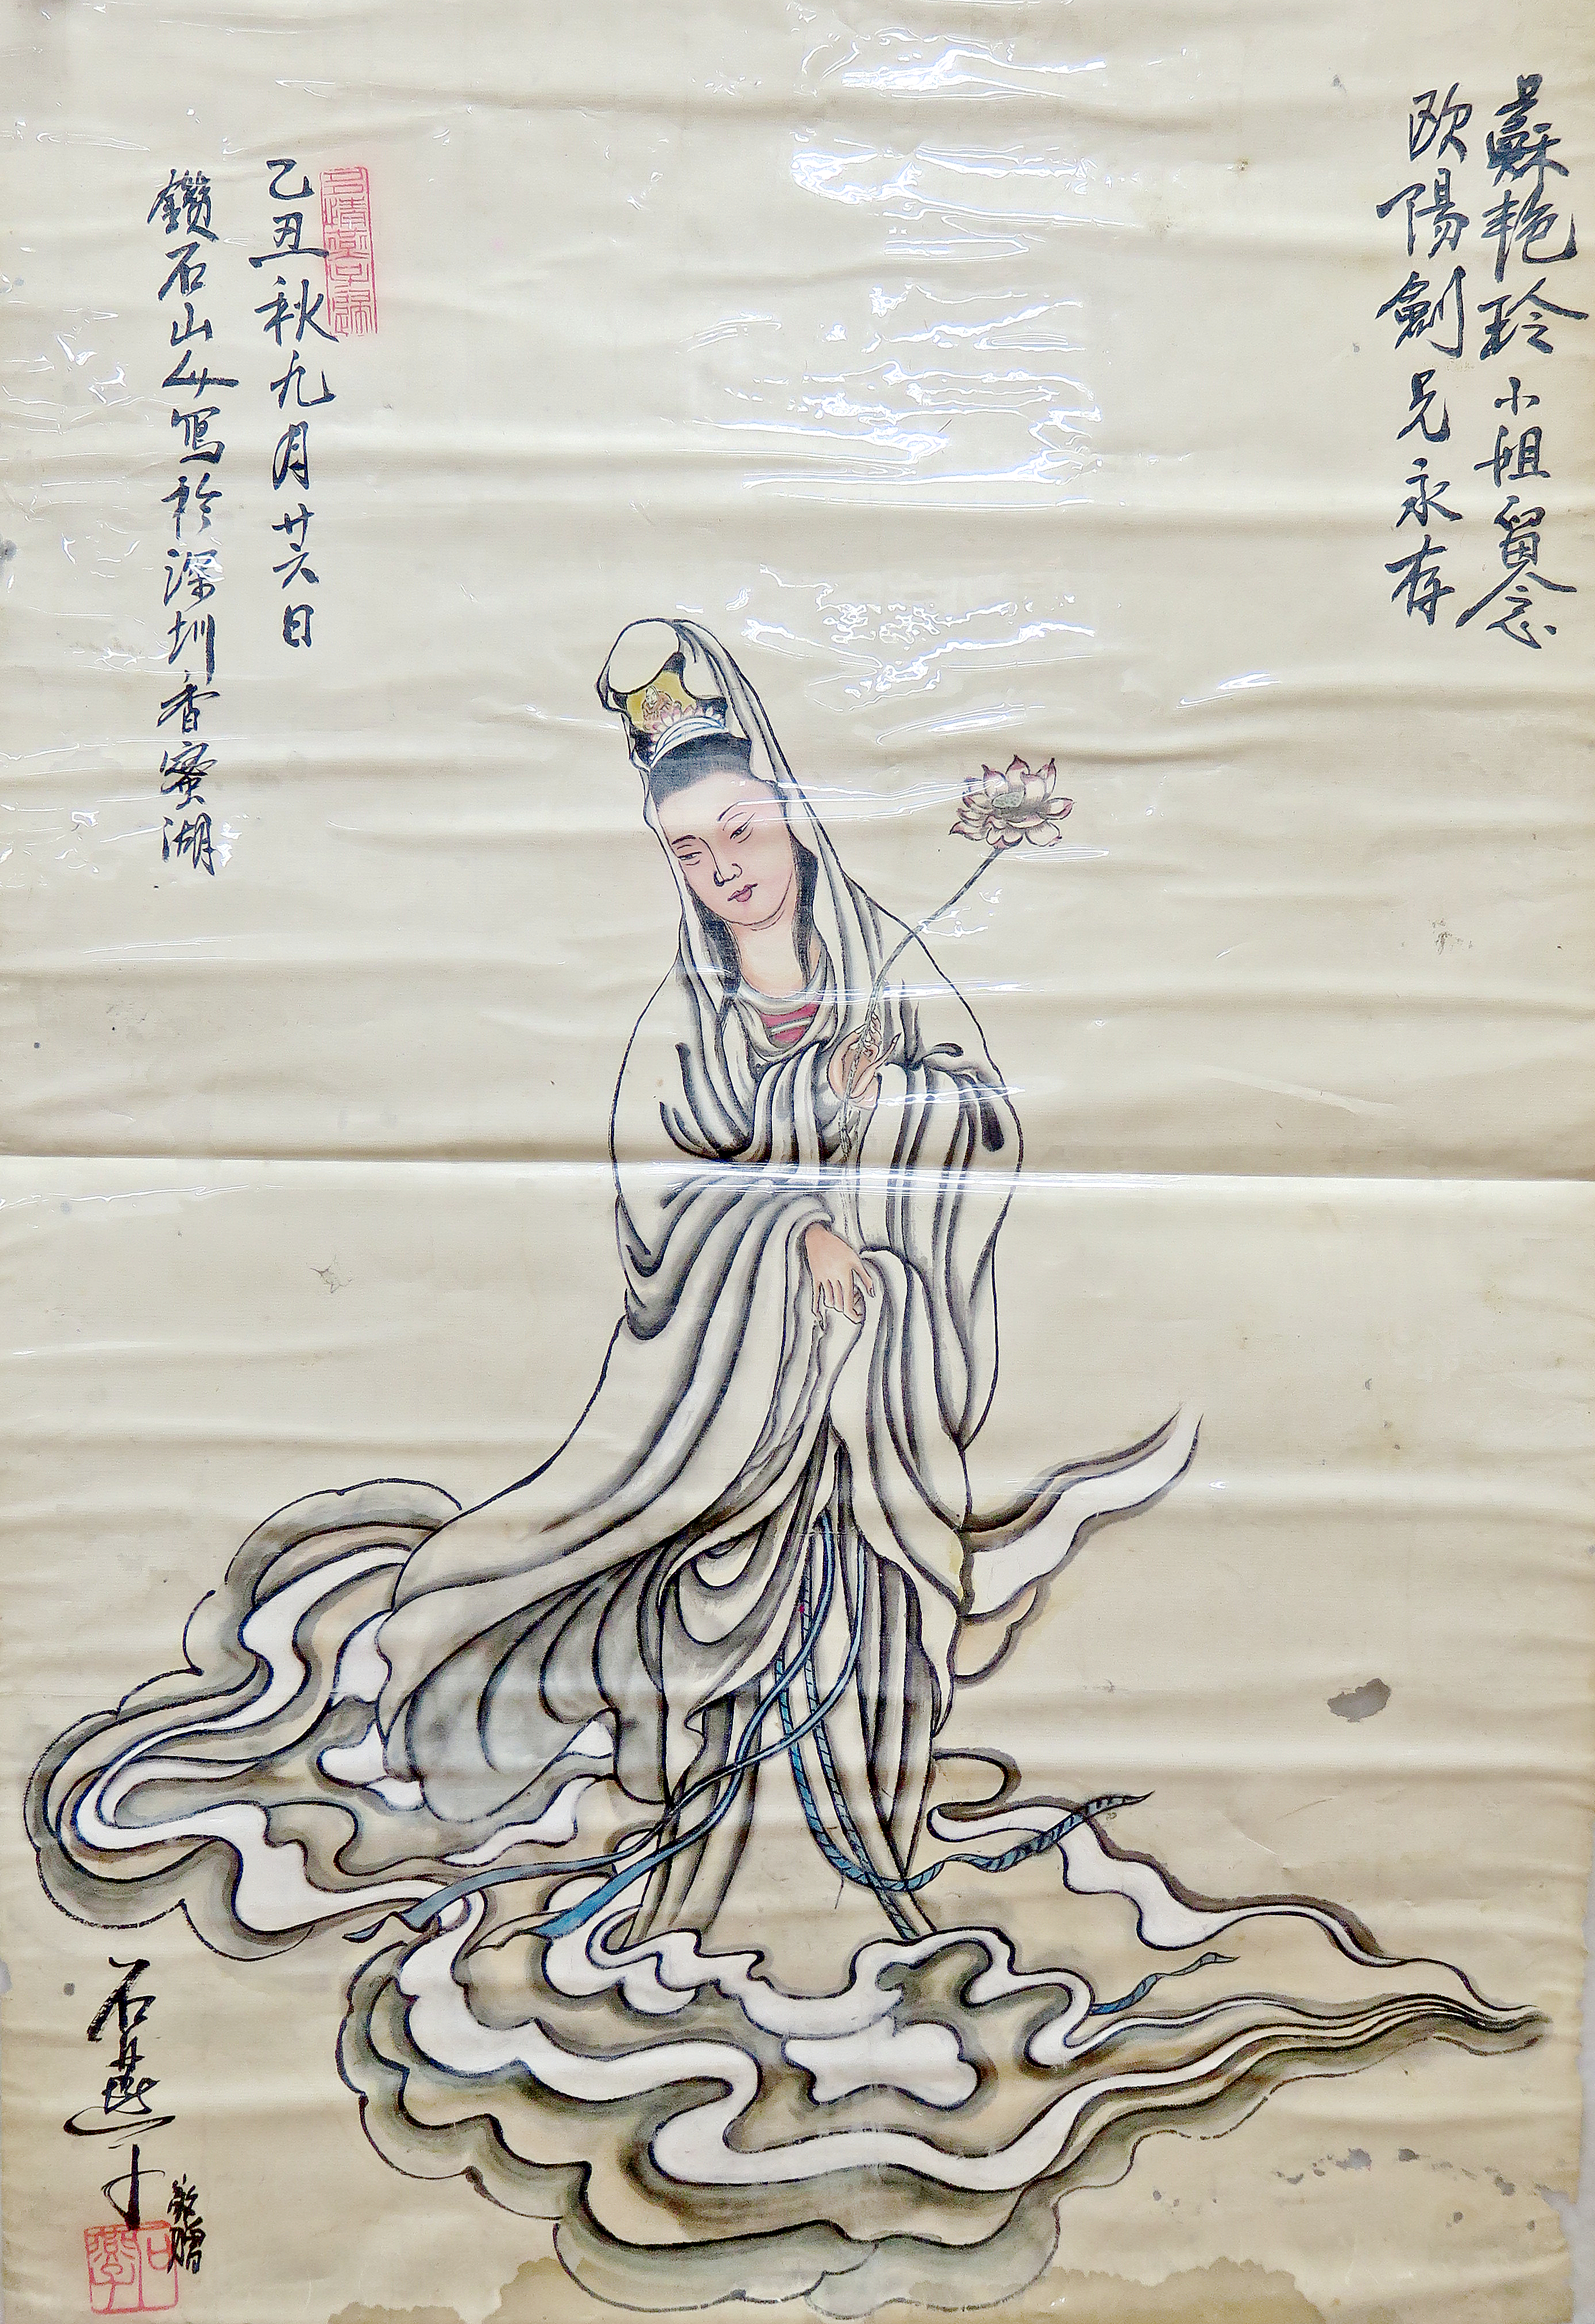 蘇艳玲小姐留念
欧陽劍兄永存
乙丑秋九月廿六日
鑽石山人寫於深圳香蜜湖
石燕
敬贈